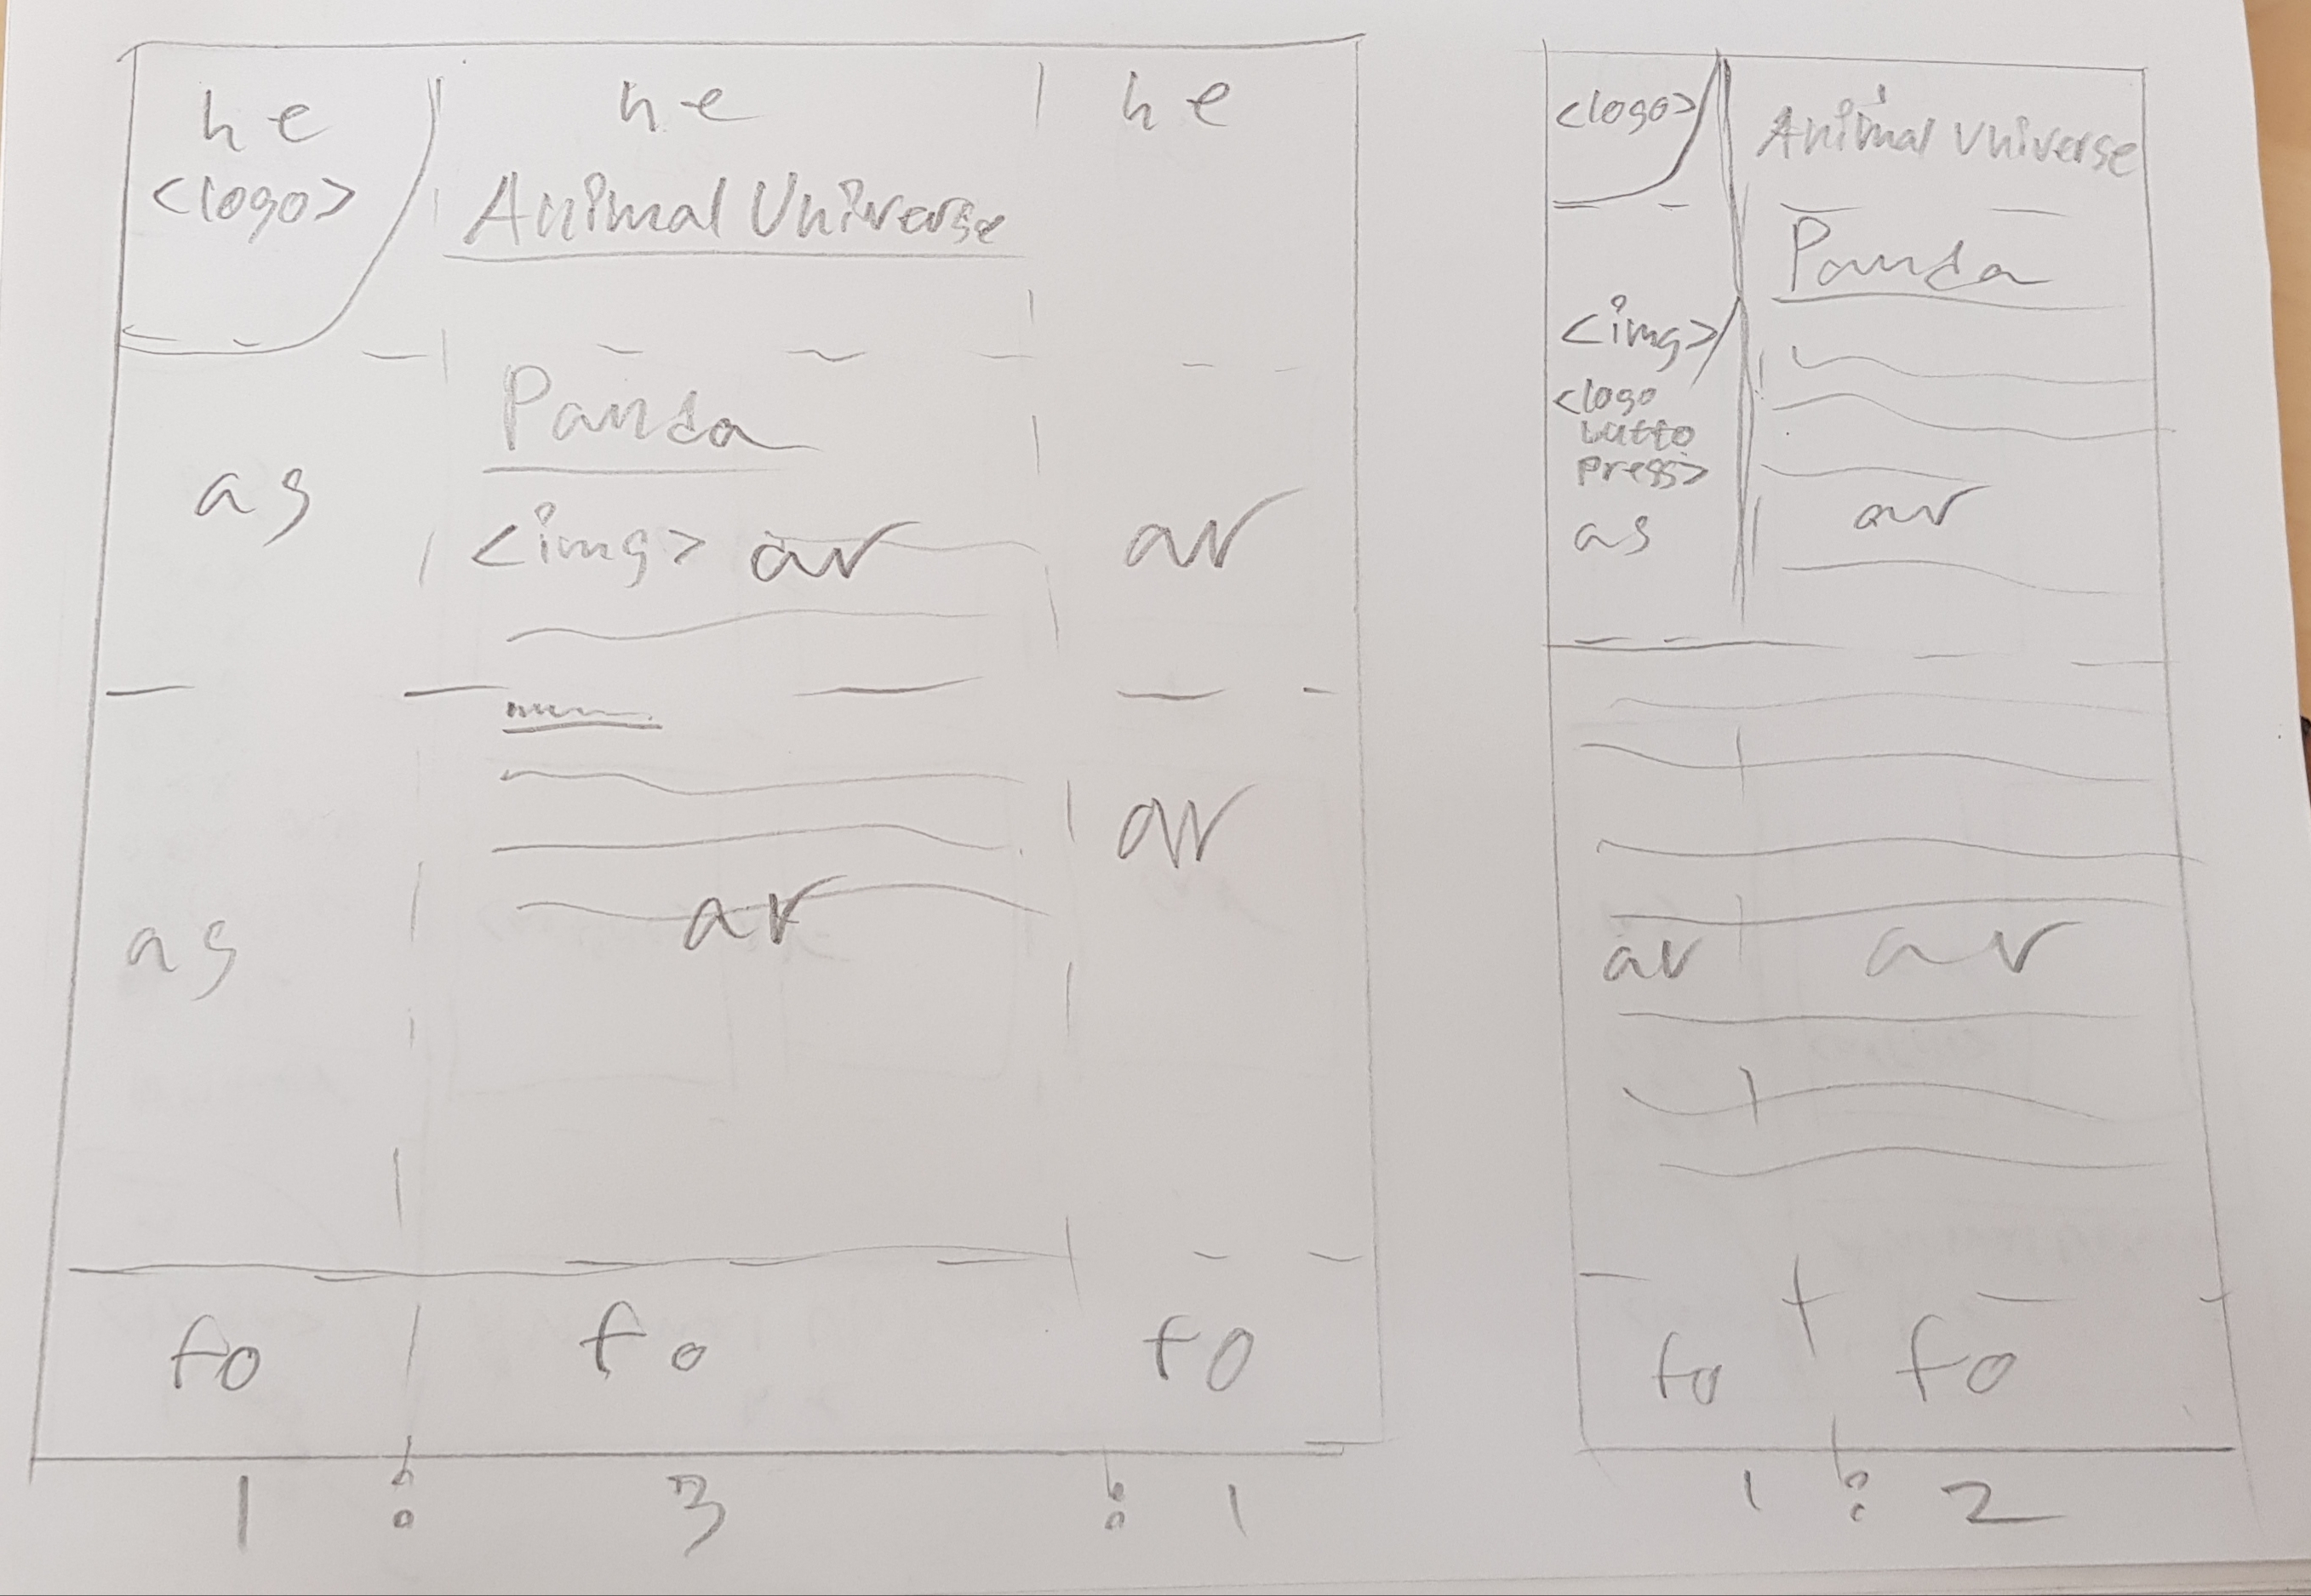 he he he
<logo>
Animal Universe
Panda
as
<img> ar ar
ar
as ar
fo fo fo
1 : 3 : 1
<logo>
Animal Universe
Panda
<img>
<logo
butto
press>
as ar
ar ar
fo fo
1 : 2